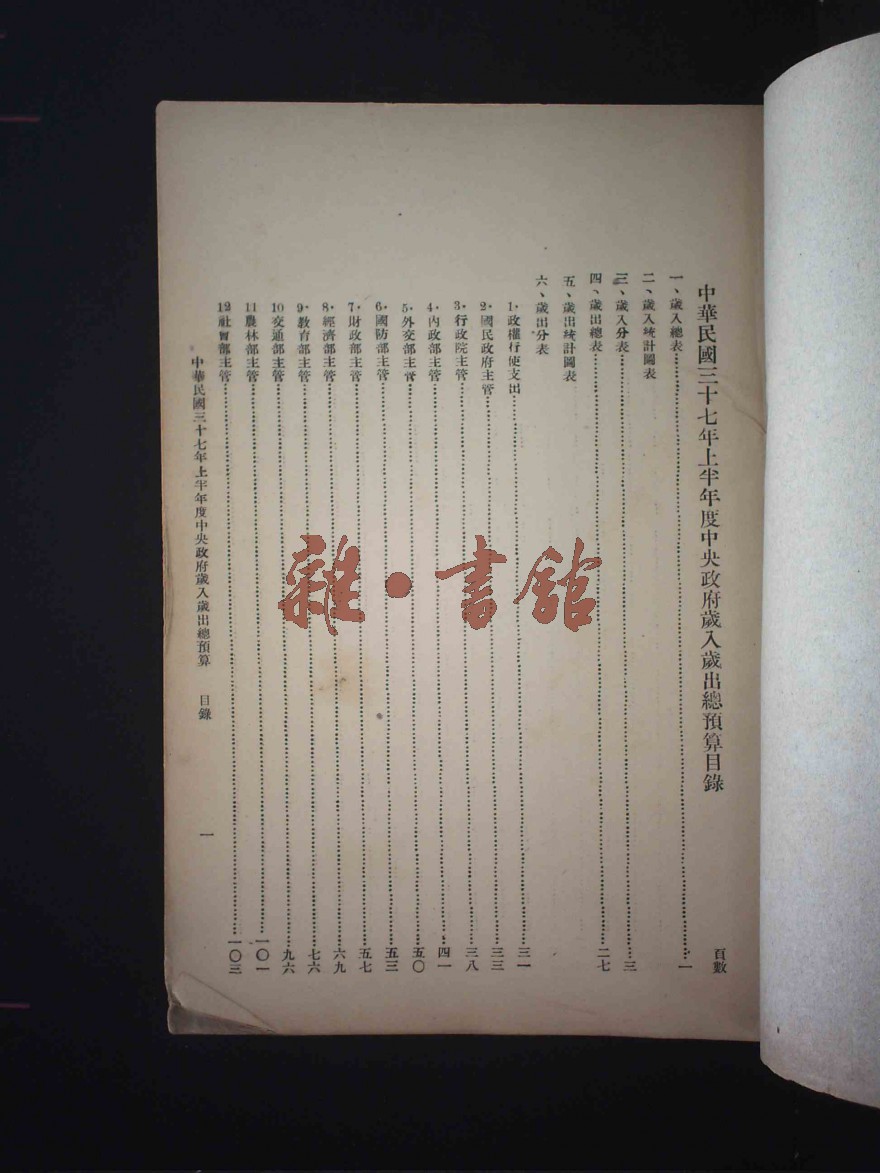 中華民國三十七年上半年度中央政府歲入歲出總預算目錄
頁數
一、歲入總表……一
二、歲入統計圖表
三、歲入分表……三
四、歲出總表……二七
五、歲出統計圖表
六、歲出分表
1．政權行使支出……三一
2．國民政府主管……三三
3．行政院主管……三八
4．內政部主管……四一
5．外交部主管……五〇
6．國防部主管……五三
7．財政部主管……五七
8．經濟部主管……六九
9．教育部主管……七六
10交通部主管……九六
11農林部主管……一〇一
12社會部主管……一〇三
中華民國三十七年上半年度中央政府歲入歲出總預算 目錄 一
雜·書館